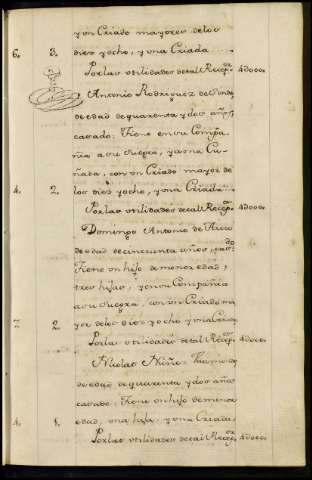 y un Criado mayores delos
6. 3. dies yocho, y una Criada
Por las utilidades de tal Recep.ᵒʳ 4ᗪ000.
Antonio Rodriguez de
de edad de quarenta ydos años,
casado: Tiene en su Compa
ñia a su Suegra, y a una Cu
ñada, con un Criado mayor de
4. 2. los dies yocho, y una Criada
Por las utilidades de tal Recep.ᵒʳ 4ᗪ000.
Domingo Antonio de
de edad de cincuenta años, cas.ᵈᵒ
Tiene un hijo de menor edad,
tres hijas, y en su Compañia
a su Suegra, con un Criado ma
7. 2. yor delos dies yocho, y una Criada
Por las utilidades de tal Recep.ᵒʳ 4ᗪ000.
Nicolas Niño
de edad de quarenta y dos años
casado, Tiene un hijo de menor
4. 1. edad, una hija, y una Criada.
Por las utilidades de tal Recep.ᵒʳ 4ᗪ000.